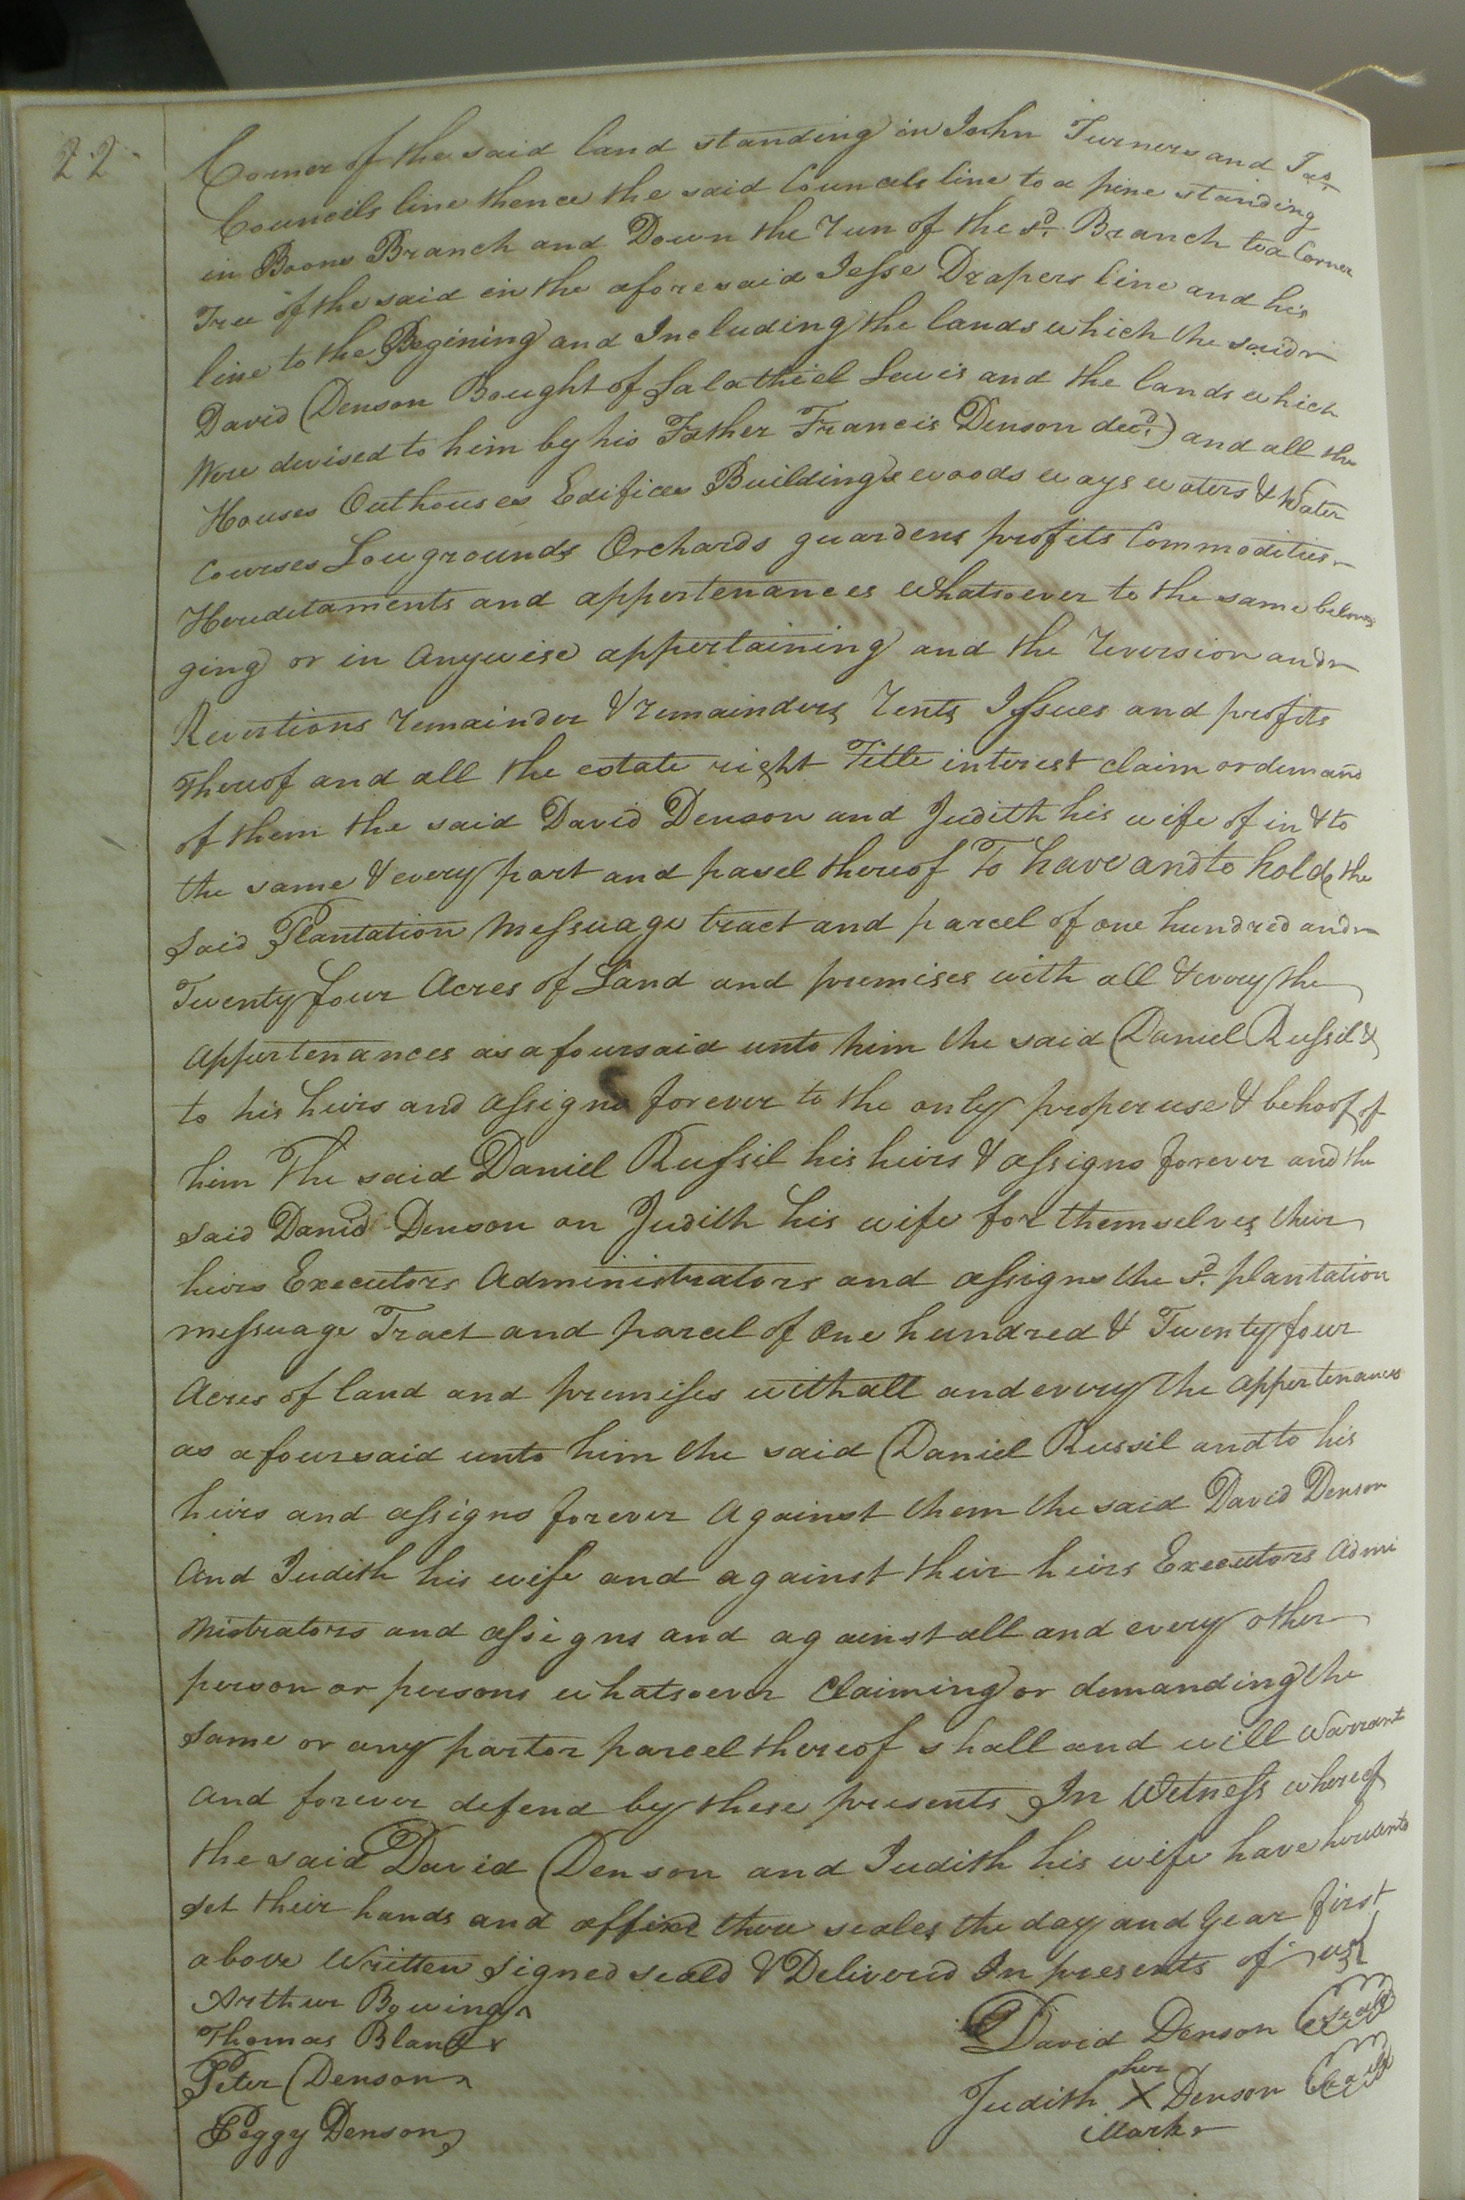 22
Corner of the said land standing in John Turners and Jas.
Councils line thence the said Councils line to a pine standing
in Boons Branch and Down the run of the sd. Branch to a Corner
Tree of the said in the aforesaid Jesse Drapers line and his
line to the Begining and Including the lands which the said
David Denson Bought of Salathiel Lewis and the lands which
Were devised to him by his Father Francis Denson decd.) and all the
Houses Outhouses Edifices Buildings woods ways waters & Water
Courses Lowgrounds Orchards guardens profits Commodities
Heriditaments and appertenances whatsoever to the same belon
ging or in Anywise appertaining and the reversion and
Revertions remainder & remainders rents Issues and profits
thereof and all the estate right Title interest claim or demand
of them the said David Denson and Judith his wife of in & to
the same & every part and pasel thereof To have and to hold the
Said Plantation Messuage tract and parcel of one hundred and
Twenty four Acres of Land and premises with all & every the
appurtenances as afoursaid unto him the said Daniel Russil &
to his heirs and assigns forever to the only proper use & behoof of
him The said Daniel Russil his heirs & assigns forever and the
said David Denson an Judith his wife for themselves their
heirs Executors Administrators and assigns the sd. plantation
messuage Tract and parcel of One hundred & Twenty four
Acres of land and premises with all and every the appertenances
as afoursaid unto him the said Daniel Russil and to his
heirs and assigns forever Against them the said David Denson
And Judith his wife and against their heirs Executors Admi
nistrators and assigns and against all and every other
person or persons whatsoever Claiming or demanding the
same or any part or parcel thereof shall and will Warrant
And forever defend by these presents In Witness whereof
the said David Denson and Judith his wife have hereunto
set their hands and affixed thire seales the day and year first
above Written signed seald & Deliverd In presents of us
Arthur Bowing
Thomas Bland
Peter Denson
Peggy Denson
David Denson Seal
her
Judith X Denson Seal
Mark